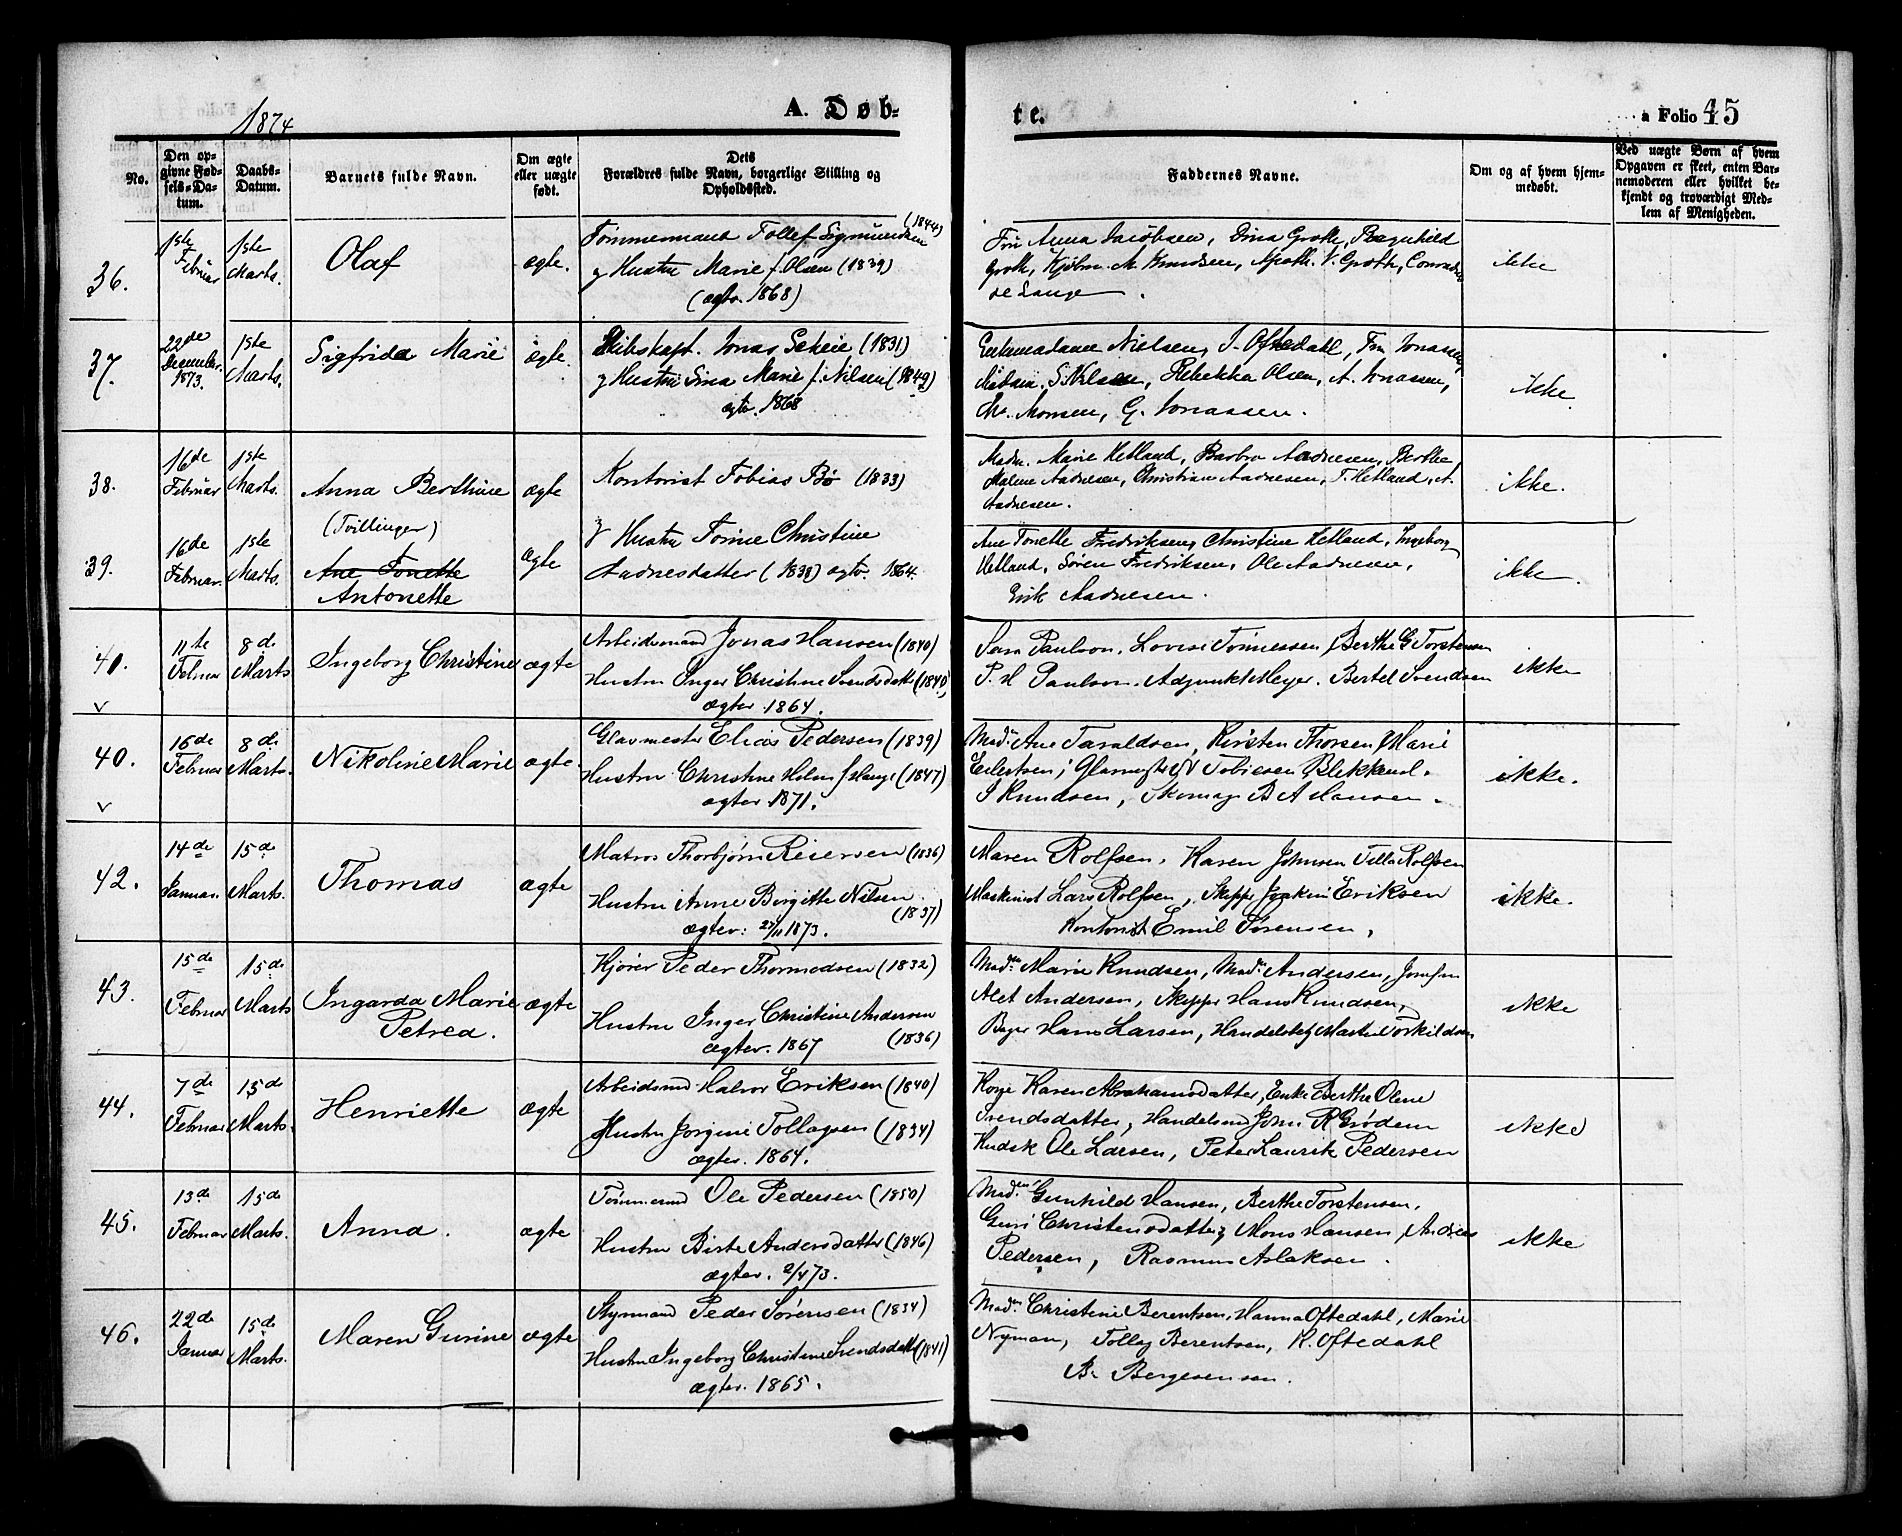 1874
A. Døb-
te.
a Folio 45
No.
Den op-
givne Fød-
sels-Da-
tum.
Daabs-
Datum.
Barnets fulde Navn.
Om ægte
eller uægte
født.
Dets
Forældres fulde Navn, borgerlige Stilling og
Opholdssted.
Faddernes Navne.
Om og af hvem hjem-
medøbt.
Ved uægte Børn af hvem
Opgaven er skeet, enten Bar-
nemoderen eller hvilket be-
kjendt og troværdigt Med-
lem af Menigheden.
36.
1ste
Februar
1ste
Marts.
Olaf
ægte.
(1844)
Tømmermand Tollef Sigmundsen
g Hustru Marie f. Olsen (1839)
(ægtv. 1868)
Frü Anna Jacobsen, Dina Groth, Ragnhild
Groth, Kjøbm. M. Knudsen, Apoth. V. Groth,
de Lange.
ikke
37.
22de
December
1873.
1ste
Marts.
Sigfrida Marie
ægte.
Skibskapt. Jonas (1831)
g Hustru Sina Marie f. Nilsen (1849)
ægtv. 1868
Nielsen, J. Oftedahl, Fru Jonassen,
Madam S. Nilsen, Rebekka Olsen, A. Jonassen,
Chr. Monsen, G. Jonassen.
ikke
38.
16de
Februar
1ste
Marts.
Anna Berthine
(Tvillinger)
ægte
Kontorist Tobias Bø (1833)
Madm. Marie Hetland, Barbro Aadnesen, Berthe
Malene Aadnesen, Christian Aadnesen, T. Hetland, A.
Aadnesen.
ikke.
39.
16de
Februar.
1ste
Marts.
Ane Tonette
Antonette
ægte
g Hustru Tomine Christine
Aadnesdatter (1838) ægtv. 1864.
Ane Tonette Fredriksen, Christine Hetland, Ingeborg
Hetland, Søren Fredriksen, Ole Aadnesen,
Erik Aadnesen.
ikke.
41.
11te
Februar
8de
Marts
Ingeborg Christine
ægte
Arbeidsmand Jonas Hansen (1840)
Hustru Inger Christine Svendsdatter (1840)
ægtev 1864.
Sara Paulson, Lovise Tønnessen, Berthe G Torstensen
P. H Paulson. Adjunkt Meyer. Bertel Svendsen
ikke
40.
16de
Februar
8de
Marts.
Nikoline Marie
ægte.
Glasmester Elias Pedersen (1839)
Hustru Christine Helene f Hauge (1847)
ægtev 1871.
Madm Ane Taraldsen, Kirsten Thorsen, Marie
Eilertsen, Glasmester Tobiesen
J Knudsen, Skomager B A Hansen.
ikke.
42.
14de
Januar.
15de
Marts.
Thomas
ægte
Matros Thorbjørn Reiersen (1836)
Hustru Anne Birgitte Nilsen
(1837)
ægtev: 27/11 1873.
Maren Rolfsen, Karen Johnsen, Rolfsen
Maskinist Lars Rolfsen, Skipper Joakim Eriksen
Kontorist Emil Sørensen,
ikke.
43.
15de
Februar
15de
Marts
Ingarda Marie
Petrea.
ægte
Kjører Peder Thormodsen (1832)
Hustru Inger Christine Andersen
ægtev. 1867 (1836)
Madm Marie Knudsen, Madm Andersen, Josefine
Alet Andersen, Skipper Hans Knudsen,
Bager Hans Larsen, Handelsbetj Martin Torkildsen
ikke
44.
7de
Februar
15de
Marts.
Henriette
ægte
Arbeidsmd Halvor Eriksen (1840)
Hustru Jorgine Tollagsen (1834)
ægtev. 1864.
Karen Abrahamsdatter, Enke Berthe Olene
Svendsdatter, Handelsmd John R Grødem
Kudsk Ole Larsen, Peter Laurits Pedersen
ikke
45.
13de
Februar
15de
Marts.
Anna.
ægte
Tømmermd Ole Pedersen (1850)
Hustru Birte Andersdatter (1846)
ægtev. 2/4 73.
Madm Gunhild Hansen, Berthe Torstensen,
Guri Christensdatter, Mons Hansen, Andreas
Pedersen, Rasmus Aslaksen.
ikke
46.
22de
Januar
15de
Marts.
Maren Gurine
ægte
Styrmand Peder Sørensen (1834)
Hustru Ingeborg Christine Svendsdatter (1841)
ægtev. 1865.
Madm Christine Berentsen, Hanna Oftedahl, Marie
Nyman, Tollag Berentsen, K. Oftedahl
B. Bergesensen.